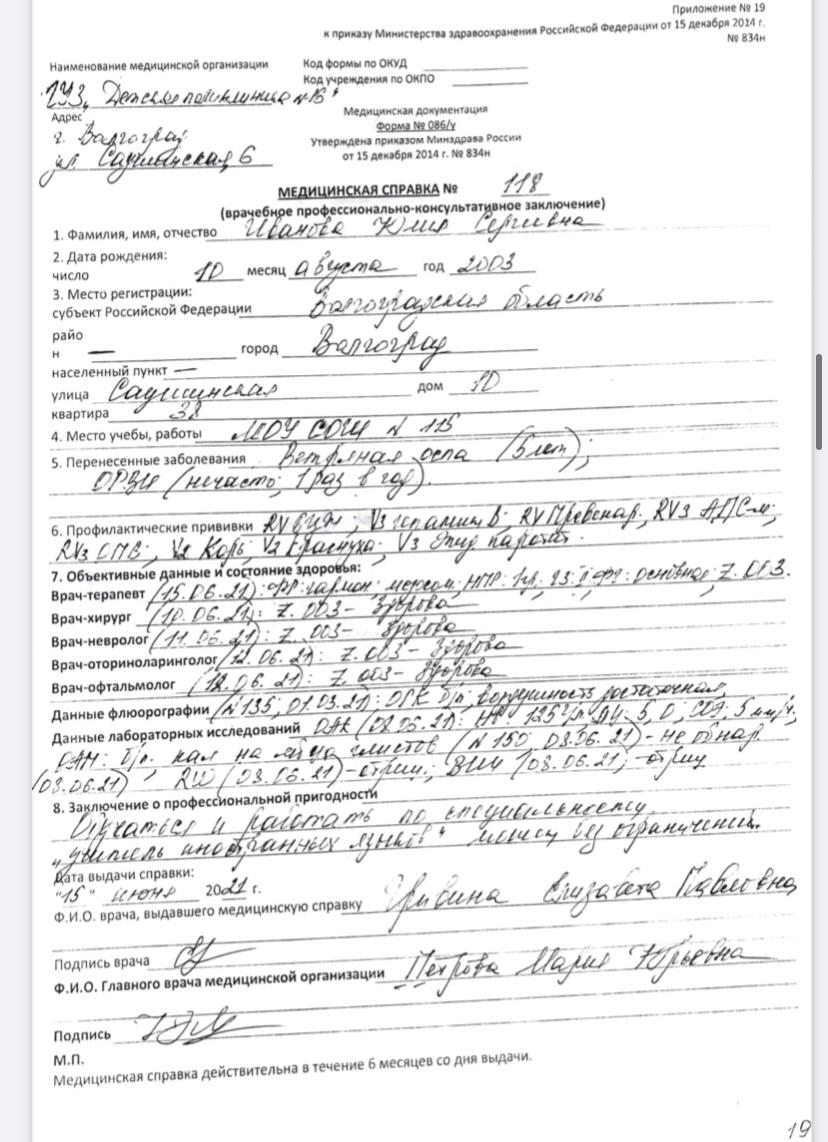 Приложение № 19
к приказу Министерства здравоохранения Российской Федерации от 15 декабря 2014 г.
№ 834н
Наименование медицинской организации
Код формы по ОКУД
Код учреждения по ОКПО
ГУЗ „Детская поликлиника №16"
Адрес
г. Волгоград
ул. Саушинская, 6
Медицинская документация
Форма № 086/у
Утверждена приказом Минздрава России
от 15 декабря 2014 г. № 834н
МЕДИЦИНСКАЯ СПРАВКА № 118
(врачебное профессионально-консультативное заключение)
1. Фамилия, имя, отчество Иванова Юлия Сергеевна
2. Дата рождения:
число 10 месяц августа год 2003
3. Место регистрации:
субъект Российской Федерации Волгоградская область
райо
н — город Волгоград
населенный пункт —
улица Саушинская дом 10
квартира 38
4. Место учебы, работы МОУ СОШ № 115
5. Перенесенные заболевания Ветряная оспа (5 лет);
ОРВИ (нечасто, 1 раз в год).
6. Профилактические прививки RV БЦЖ; V3 гепатит В; RV Превенар; RV3 АДС-м;
RV3 ОПВ; V2 Корь; V2 Краснуха; V3 Эпид. паротит.
7. Объективные данные и состояние здоровья:
Врач-терапевт (15.06.21): ФР: гармон. мезосом; НПР: 1гр, гр. основная; Z.003.
Врач-хирург (10.06.21): Z.003 – Здорова
Врач-невролог (11.06.21): Z.003 – Здорова
Врач-оториноларинголог (12.06.21): Z.003 – Здорова
Врач-офтальмолог (12.06.21): Z.003 – Здорова
Данные флюорографии (№135; 01.03.21): ОГК б/п;
Данные лабораторных исследований ОАК (08.06.21): 125 г/л; 5,0; СОЭ: 5 мм/ч;
ОАМ: б/п. кал на яйца глистов (№150, 03.06.21) – не обнар.
(03.06.21) RW (03.06.21) – отриц.; ВИЧ (03.06.21) – отриц
8. Заключение о профессиональной пригодности
Обучаться и работать по специальности
„учитель иностранных языков" может без ограничений.
Дата выдачи справки:
"15" июня 2021 г.
Ф.И.О. врача, выдавшего медицинскую справку Гривина Елизавета Павловна
Подпись врача
Ф.И.О. Главного врача медицинской организации Петрова Мария Юрьевна
Подпись
М.П.
Медицинская справка действительна в течение 6 месяцев со дня выдачи.
19